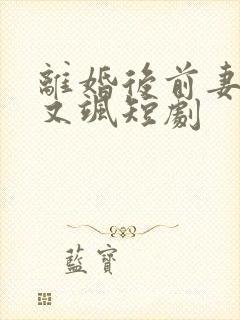 離婚後前妻
又颯短劇
藍寶